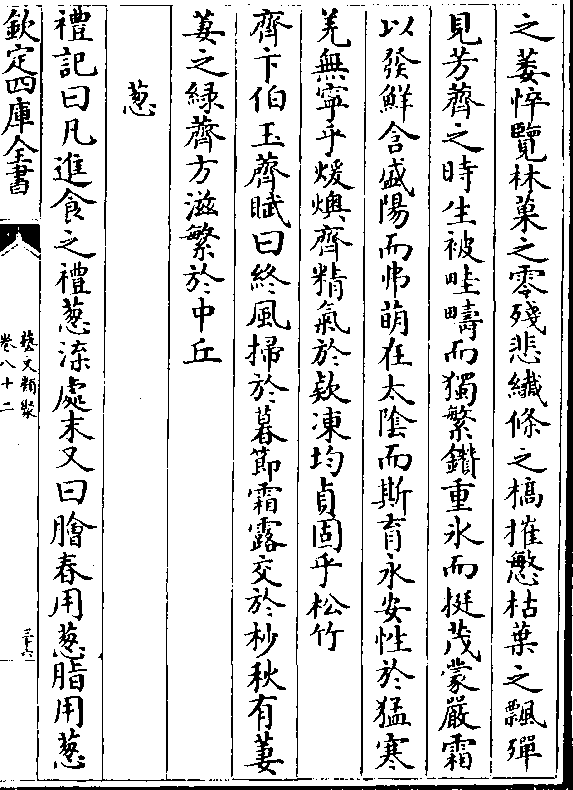 之萎悴覽林菓之零殘悲纎條之槁摧慜枯葉之飄殫
見芳薺之時生被畦疇而獨繁鑚重氷而挺茂蒙嚴霜
以發鮮含盛陽而弗萌在太陰而斯育永安性於猛寒
羌無寧乎煖燠齊精氣於欵凍均貞固乎松竹
齊卞伯玉薺賦曰終風掃於暮節霜露交於杪秋有萋
萋之緑薺方滋繁於中丘
葱
禮記曰凡進食之禮葱渿處末又曰膾春用葱脂用葱
欽定四庫全書
藝文類聚
卷八十二
三十六